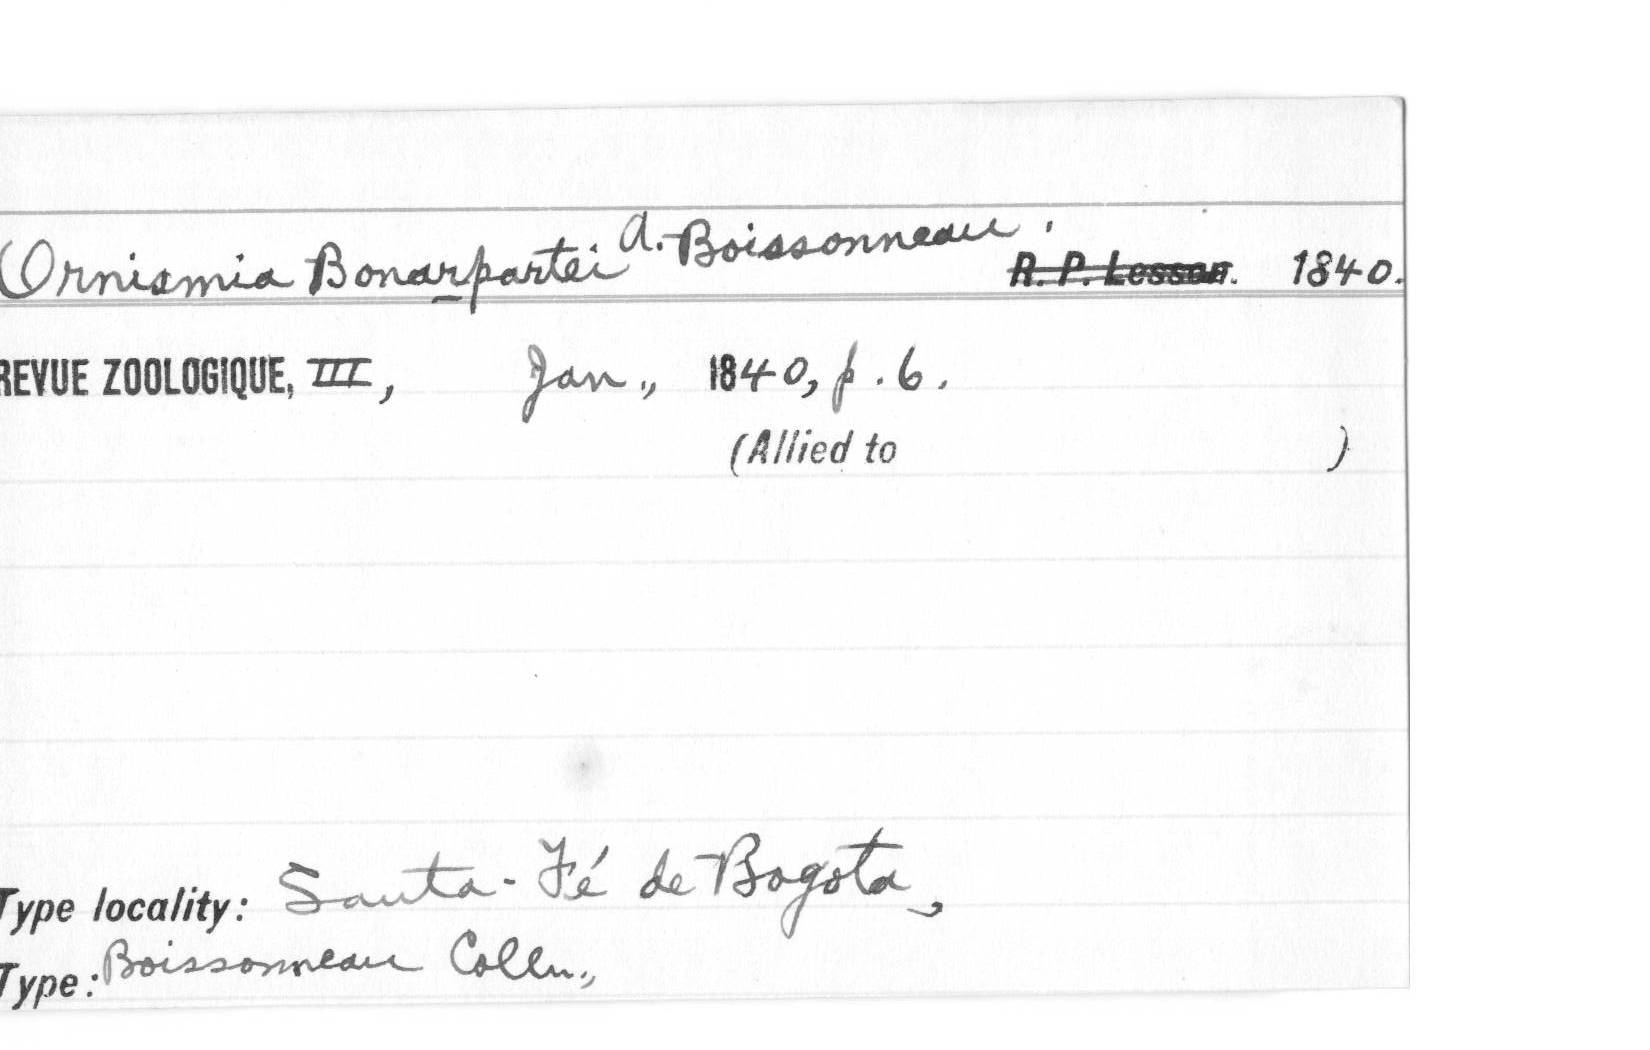 Ornismia Bonarpartei A. Boissonneau. R. P. Lesson. 1840.
REVUE ZOOLOGIQUE, III, Jan., 1840, p. 6.
(Allied to )
Type locality: Santa-Fé de Bogota,
Type: Boissonneau Colln.,